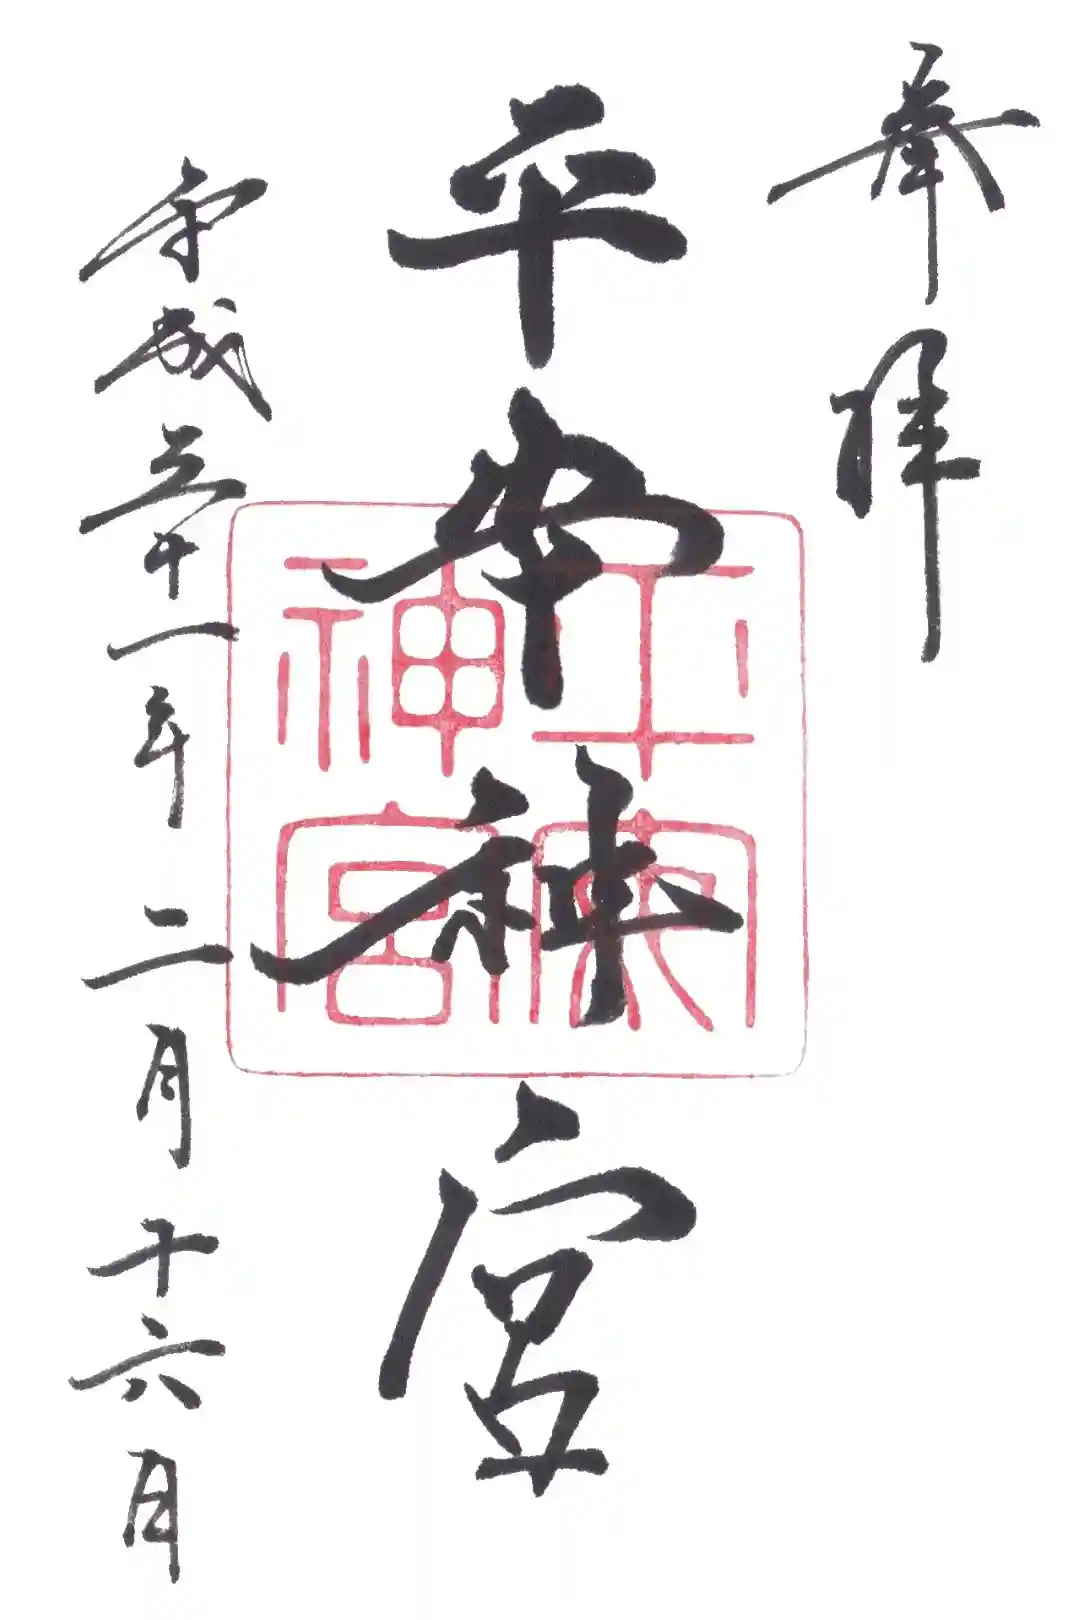 奉拝
平安神宮
平安
神宮
平成三十一年二月十六日